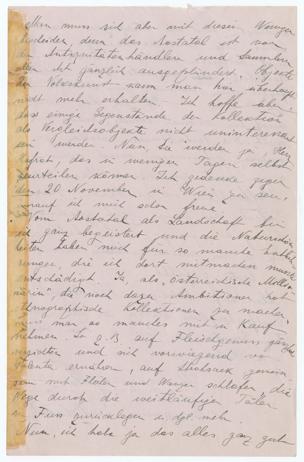 Man muss sich aber mit diesen Wenigen
bescheiden, denn das Aostatal ist von
den Antiquitätenhändlern und Sammlern
schon gänzlich ausgeplündert. Objekte
der Volkskunst kann man hier überhaupt
nicht mehr erhalten. Ich hoffe aber,
dass einige Gegenstände der Kollektion
als Vergleichsobjekte nicht uninteressant
sein werden. Nun, Sie werden ja, Herr
Hofrat, das in wenigen Tagen selbst
beurteilen können. Ich gedenke gegen
den 20 November in Wien zu sein,
worauf ich mich schon freue.
Vom Aostatal als Landschaft bin
ich ganz begeistert und die Naturschön
heiten haben mich für so manche Entbeh
rungen, die ich dort mitmachen musste
entschädigt. Ja, als "österreichische Millio
närin", die noch dazu Ambitionen hat
ethnographische Kollektionen zu machen
muss man so manches mit in Kauf
nehmen. So z. B. auf Fleischgenuss gänzlich
verzichten und sich vorwiegend von
Polenta ernähren, auf Strohsack gemein
sam mit Flöhen und Wanzen schlafen, die
Wege durch die weitläufigen Täler
zu Fuss zurückzulegen u. dgl. mehr.
Nun, ich habe ja das alles ganz gut